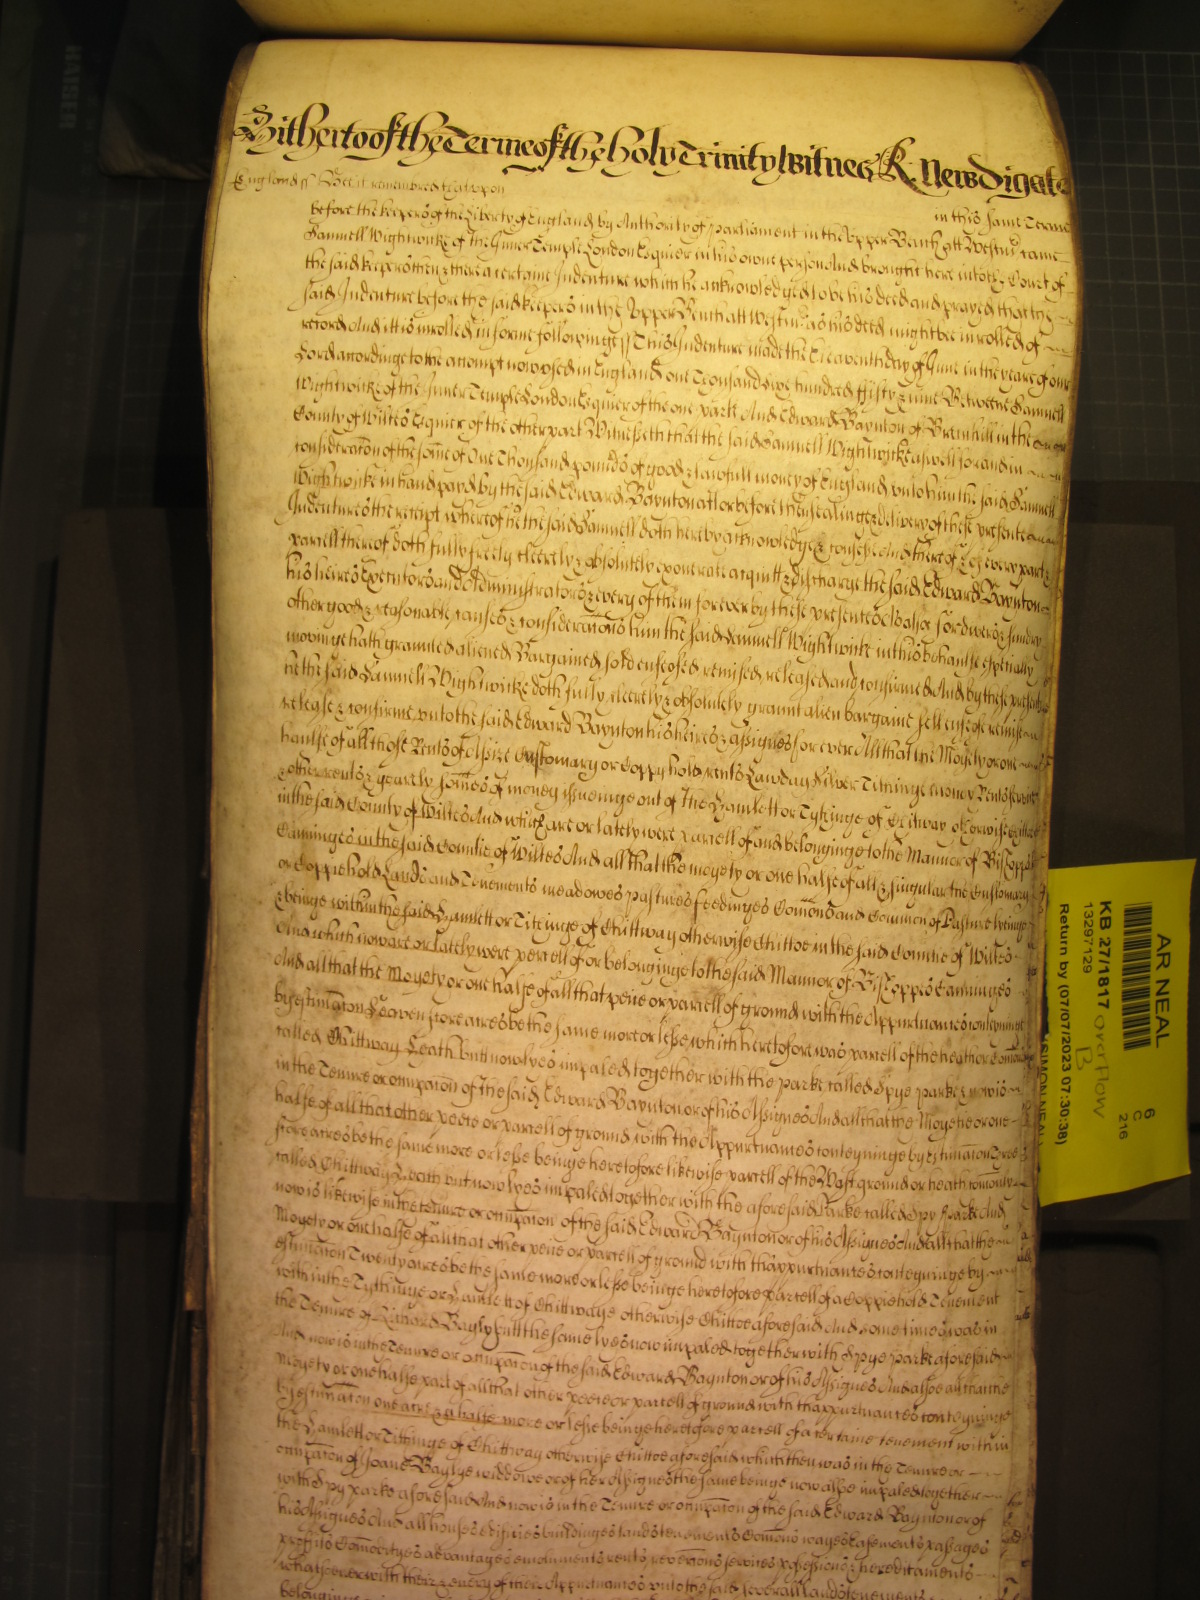 Hitherto of the Terme of the holy Trinity Witnes R. Newdigate
England ss Bee it remembred that upon in this same Terme
before the keepers of the Liberty of England by Authority of parliament in the Upper Bench att Westmr came
Samuell Wightwicke of the Inner Temple London Esquier in his owne person And brought here into the Court of
the said keepers then & there a certaine Indenture which he acknowledged to be his deed and prayed that the
said Indenture before the said keepers in the Upper Bench att Westmr as his deed might bee inrolled of
record And itt is inrolled in forme followinge ss This Indenture made the Eleaventh day of June in the yeare of our
Lord accordinge to the accompt now used in England one Thousand sixe hundred fifty & nine Betweene Samuell
Wightwicke of the Inner Temple London Esquier of the one parte And Edward Baynton of Bremhill in the
County of Wiltes Esquier of the other part Witnesseth that the said Samuell Wightwicke aswell for and in
consideracon of the some of One Thousand pounds of good & lawfull money of England unto him the said Samuell
Wightwicke in hand payd by the said Edward Baynton att or before thensealinge & delivery of these presente
Indentures the receipt whereof he the said Samuell doth hereby acknowledge & confesse And thereof & of every part &
parcell thereof doth fully freely cleerely & absolutely exonerate acquitt & discharge the said Edward Baynton
his heires Executors and Administrators & every of them for ever by these presentes As alsoe for divers & sundry
other good & reasonable causes & consideracons him the said Samuell Wightwicke in this behaulfe especially
moveinge hath graunted aliened Bargained sold enfeofed remised released and confirmed And by these presentes
he the said Samuell Wightwicke doth fully cleerely & absolutely graunt alien bargaine sell enfeofe remise
release & confirme unto the said Edward Baynton his heires & assignes for ever All that the Moyety or one
haulfe of all those Rents of Assize Customary or Coppy hold rents Lawday Silver Tithinge money Rents
& other rents & yearely somes of money issueinge out of the Hamlett or Tythinge of Chitway otherwise Chittoe
in the said County of Wiltes And which are or lately were parcell of and belonginge to the Mannor of Bishopps
Canninges in the said Countie of Wiltes And all that the moyety or one halfe of all & singular the Customary
or Coppiehold Lands and Tenements meadowes pastures feedinges Comons and Common of Pasture
& beinge within the said Hamlett or Titheinge of Chittway otherwise Chittoe in the said Countie of Wiltes
And which now are or lately were percell of or belonginge to the said Mannor of Bishopps Canninges
And all that the Moyety or one halfe of all that peice or parcell of ground with the Appurtnances conteyninge
by estimacon Seaven score acres be the same more or lesse which heretofore was parcell of the heath or Comon
called Chittway Heath but now lyes impaled together with the parke called Spye parke & now is
in the Tenure or occupacon of the said Edward Baynton or of his Assignes And all that the Moyetie or one
halfe of all that other peece or parcell of ground with the Appurtnances conteyninge by Estimacon Three
score acres be the same more or lesse beinge heretofore likewise parcell of the Wast ground or heath comonly
called Chittway Heath but now lyes impaled together with the aforesaid Parke called Spy Parke And
now is likewise in the tenure or occupacon of the said Edward Baynton or of his Assignes And all that the
Moyety or one halfe of all that other peice or parcell of ground with thappurtnances conteyninge by
estimacon Twenty acres be the same more or lesse beinge heretofore parcell of a Coppiehold Tenement
within the Tythinge or Hamlett of Chittwaye otherwise Chittoe aforesaid And sometimes was in
the Tenure of Richard Bayly butt the same lyes now impaled together with Spye parke aforesaid
And now is in the Tenure or occupacon of the said Edward Baynton or of his Assignes And alsoe all that the
Moyety or one halfe part of all that other peece or parcell of ground with thappurtnances conteyninge
by estimacon one acre & a halfe more or lesse beinge heretofore parcell of a certaine tenement within
the Hamlett or Tithinge of Chittway otherwise Chittoe aforesaid which then was in the Tenure or
occupacon of Joane Baylye widdowe or of her Assignes the same beinge now alsoe impaled together
with Spy parke aforesaid And now is in the Tenure or occupacon of the said Edward Baynton or of
his Assignes And all houses edifices buildinges lands tenements Comons wayes easements passages
proffits Comodityes advantages emoluments rents revercons services possessions & hereditaments
whatsoever with their & every of their Appurtnances unto the said severall lands tenements
belonginge
AR NEAL
6
C
216
KB 27/1817 overflow
B
13297129
Return by (07/07/2023 07:30:38)
SIMON NEAL
KAISER